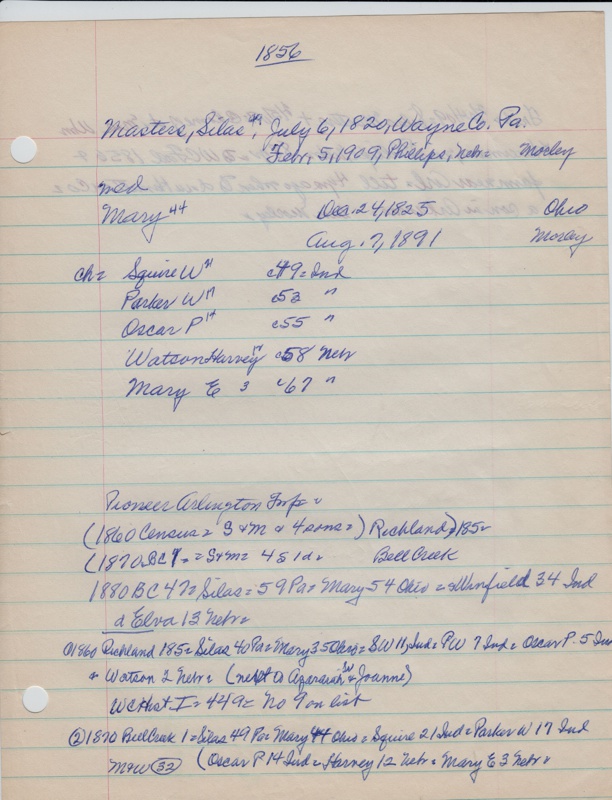 1856
Masters, Silas July 6, 1820, Wayne Co. Pa.
Febr, 5, 1909, Phillips, Nebr = Morley
med
Mary Dec. 24, 1825 Ohio
Aug. 7, 1891 Morley
ch = Squire W c49 = Ind
Parker W c52 "
Oscar P c55 "
Watson Harvey c58 Nebr
Mary E 3 c67 "
Pioneer Arlington Twp =
(1860 Census = S & M & 4 sons =) Richland) 185 =
(1870 BC 1 = = S & M = 4 s 1 d = Bell Creek
1880 BC 47 = Silas = 59 Pa = Mary 54 Ohio = & Winfield 34 Ind
d Elva 13 Nebr =
① 1860 Richland 185 = Silas 40 Pa = Mary 35 Ohio = SW 11, Ind = PW 7 Ind = Oscar P. 5 Ind
& Watson 2 Nebr = (next to Azariah & Joanne)
WC Hist I = 449 = No 9 on list
② 1870 Bell Creek 1 = Silas 49 Pa = Mary 44 Ohio = Squire 21 Ind = Parker W 17 Ind
M & W 32 (Oscar P 14 Ind = Harvey 12 Nebr = Mary E 3 Nebr =